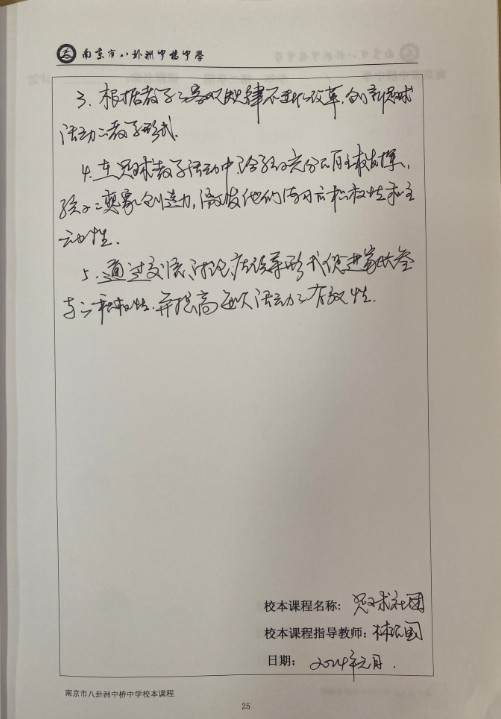 南京市八卦洲中桥中学
3、根据教学之客观规律不断改革,创新足球
活动之教学形式.
4.在足球教学活动中给孩子充分的自主
孩子之想象创造力,激发他们的积极性和主
动性.
5、通过交流、讨论、座谈等形式促进家长参
与之积极性.并提高每次活动之有效性.
校本课程名称: 足球社团
校本课程指导教师: 林
日期: 2024年元月.
南京市八卦洲中桥中学校本课程
25